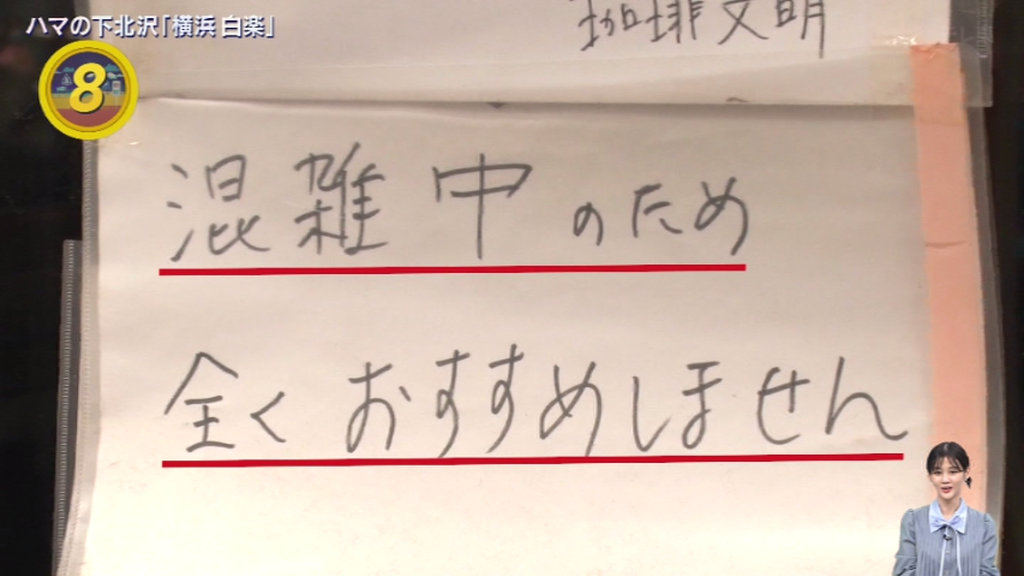 ハマの下北沢「横浜 白楽」
8
珈琲文明
混雑中のため
全くおすすめしません